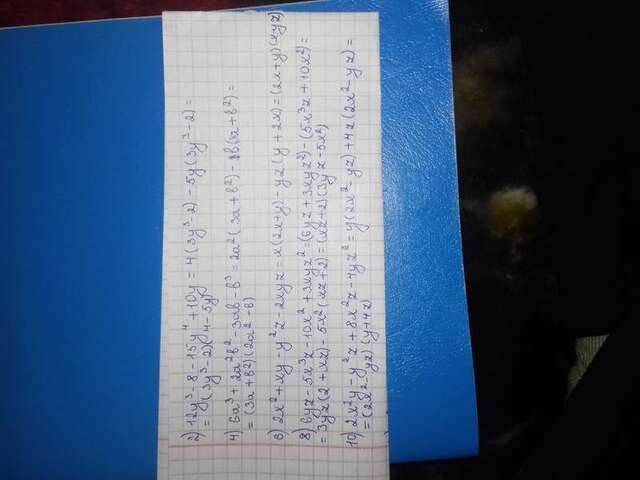 2) 12y³-8-15y⁴+10y = 4(3y³-2)-5y(3y³-2)=
= (3y³-2)(4-5y)
4) 6a³+2a²b²-3ab-b³=2a²(3a+b²)-b(3a+b²)=
=(3a+b²)(2a²-b)
6) 2x²+xy-y²z-2xyz=x(2x+y)-yz(y+2x)=(2x+y)(xyz)
8) 6yz-5x³z-10x²+3xyz²=(6yz+3xyz²)-(5x³z+10x²)=
=3yz(2+xz)-5x²(xz+2)=(xz+2)(3yz-5x²)
10) 2x²y-y²z+8x²z-4yz²=y(2x²-yz)+4z(2x²-yz)=
=(2x²-yz)(y+4z)